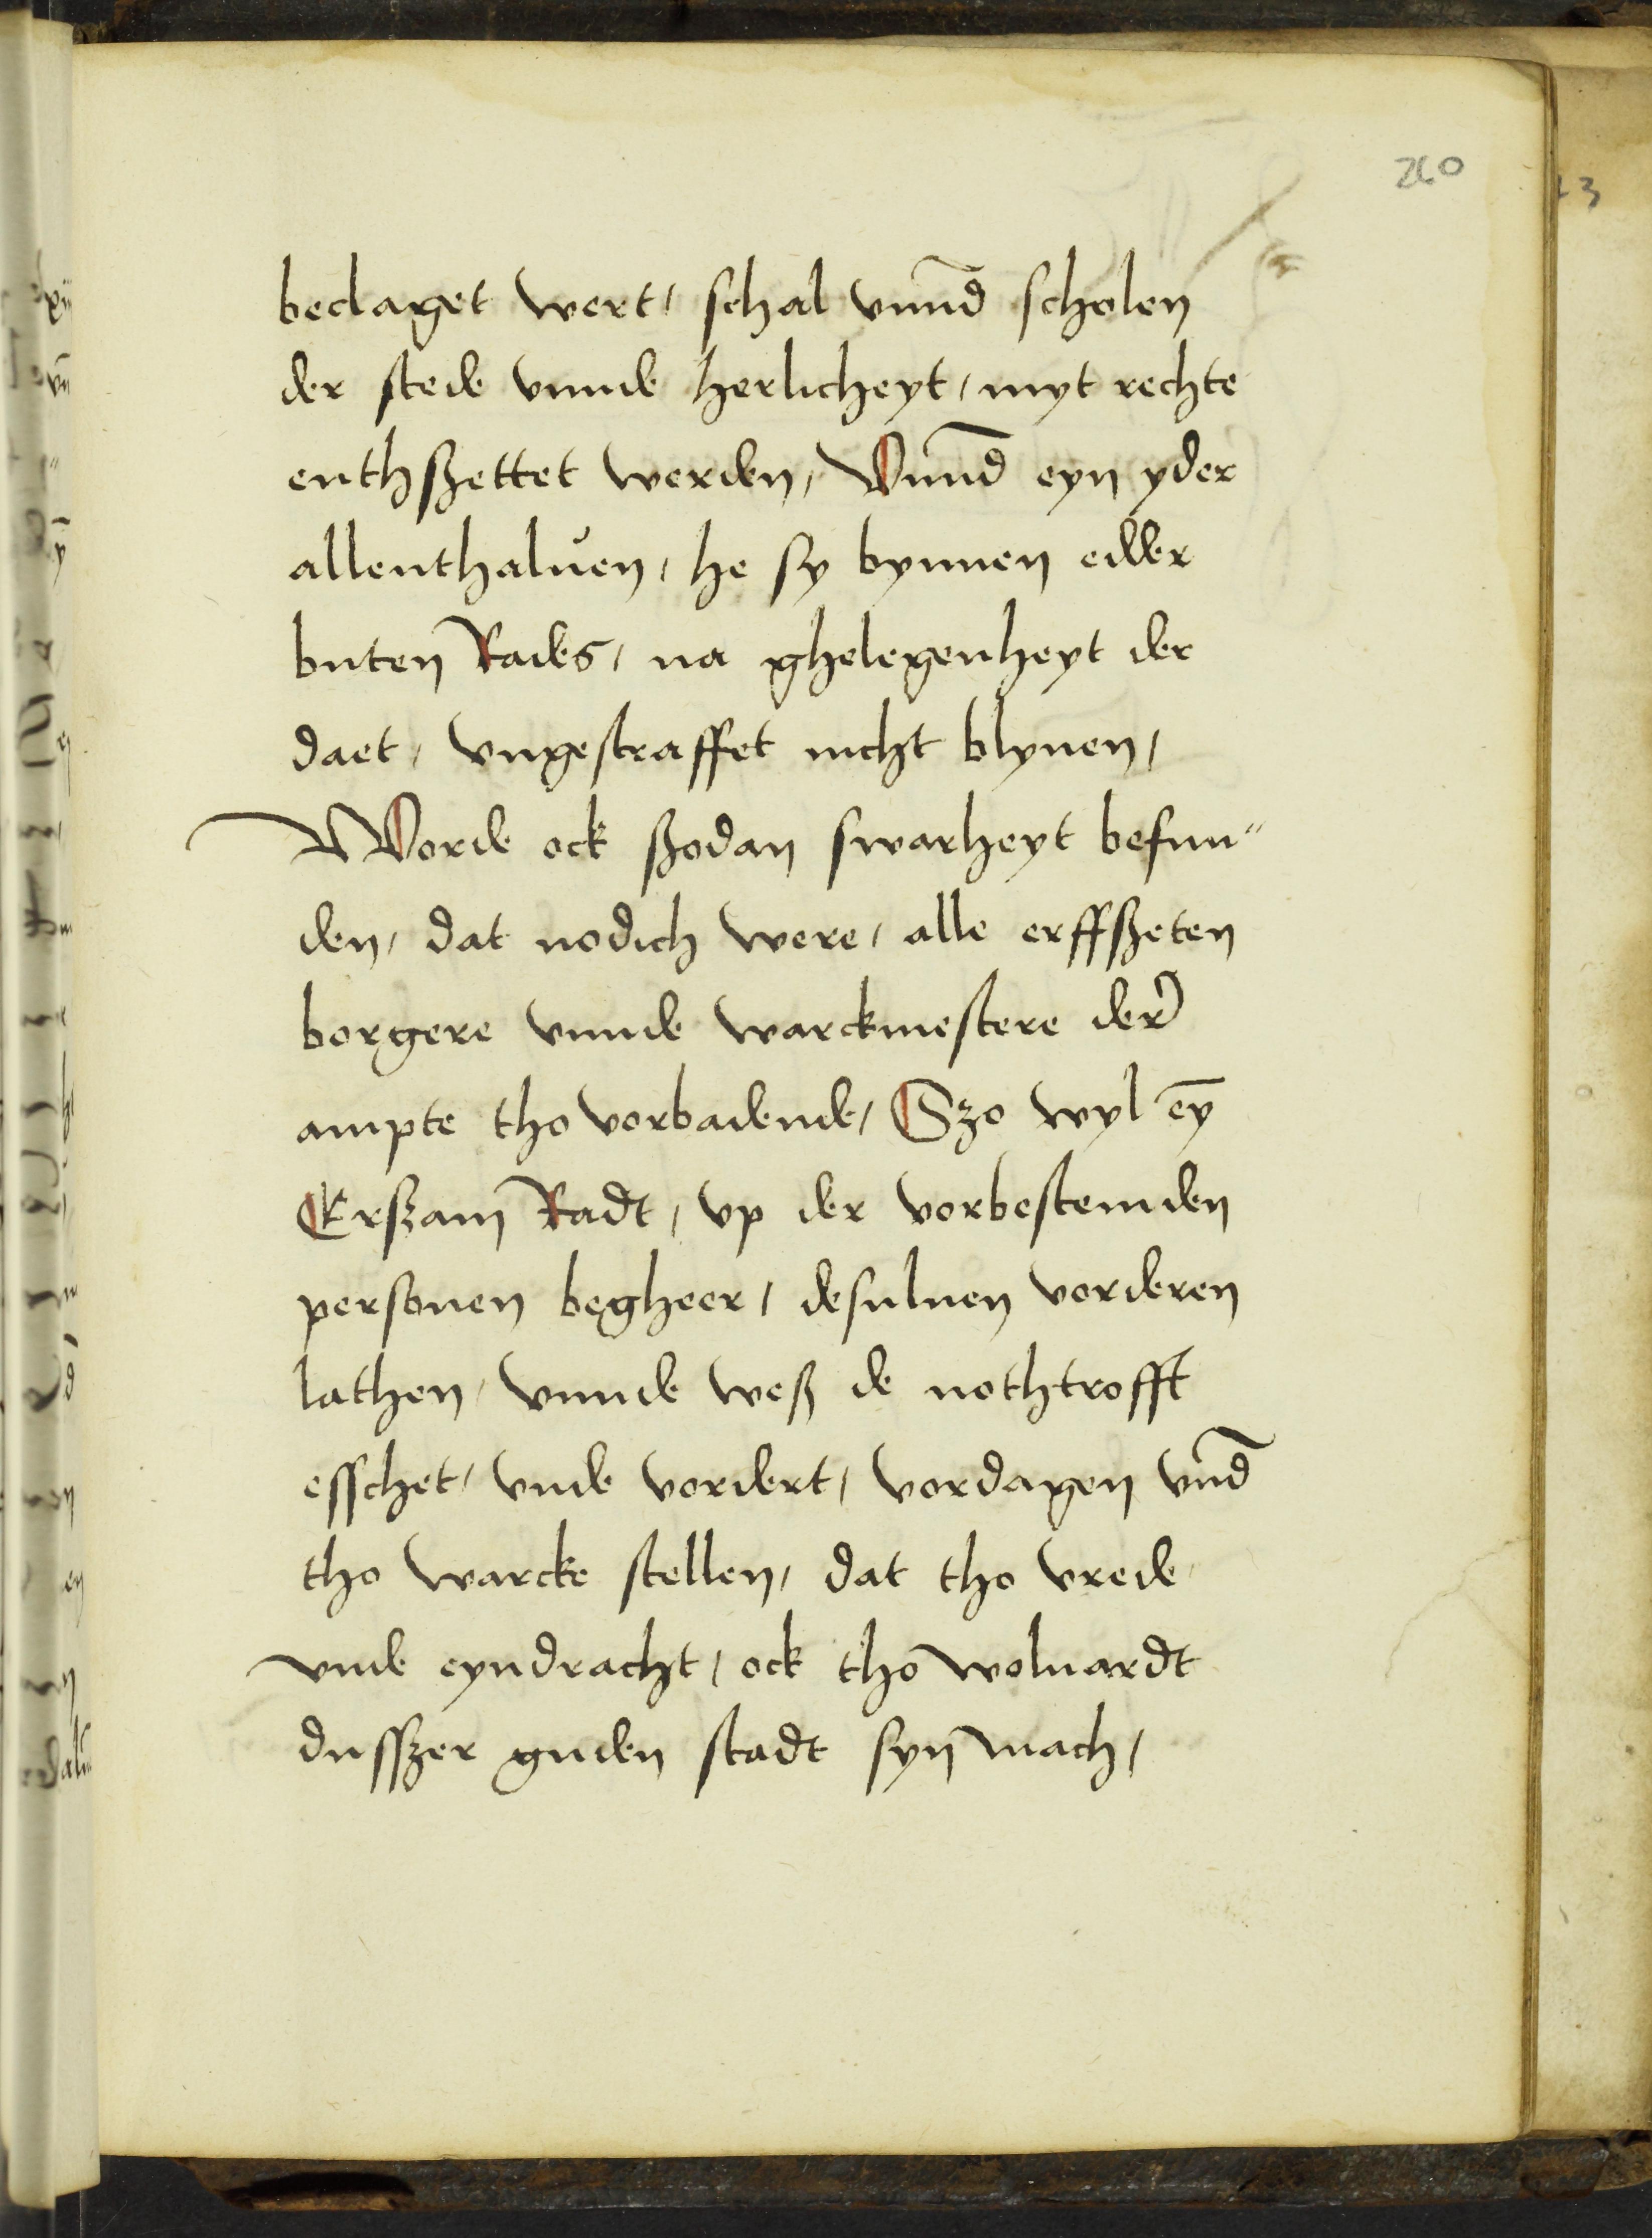 260
beclaget wert / schal vnnd̄ scholen
der stede vnnde herlicheyt / myt rechte
enthßettet werden / Vnnd̄ eyn yder
allenthaluen / he sy bynnen edder
buten Rades / na ghelegenheyt der
daet / vngestraffet nicht blyuen /
Worde ock ßodan swarheyt befun"
den / dat nodich were / alle erffßeten
borgere vnnde warckmestere der
ampte tho vorbadende / Szo wyl eȳ
Erßam Radt / vp der vorbestemden
personen begheer / desuluen vorderen
lathen / vnnde weß de nothtrofft
esschet / vnde vordert / vordagen vnd̄
tho warcke stellen / dat tho vrede
vnde eyndracht / ock tho woluardt
dusßer guden stadt syn mach /